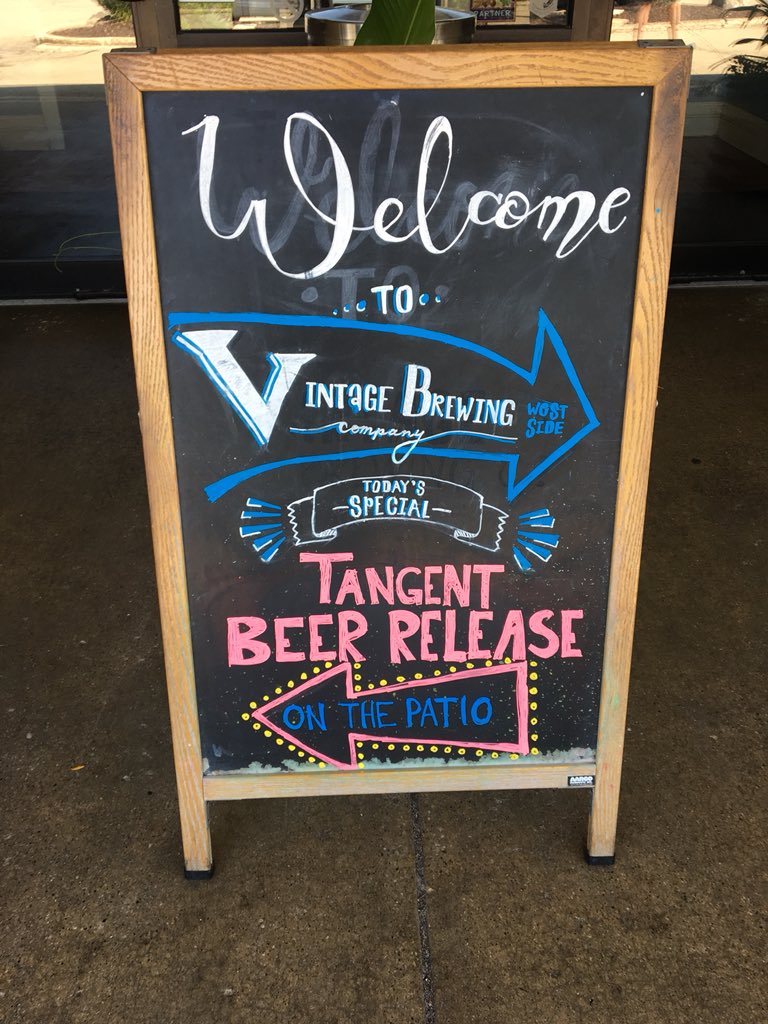 PARTNER
Welcome
TO
VINTAGE BREWING
company
WOST
SIDE
TODAY'S
SPECIAL
TANGENT
BEER RELEASE
ON THE PATIO